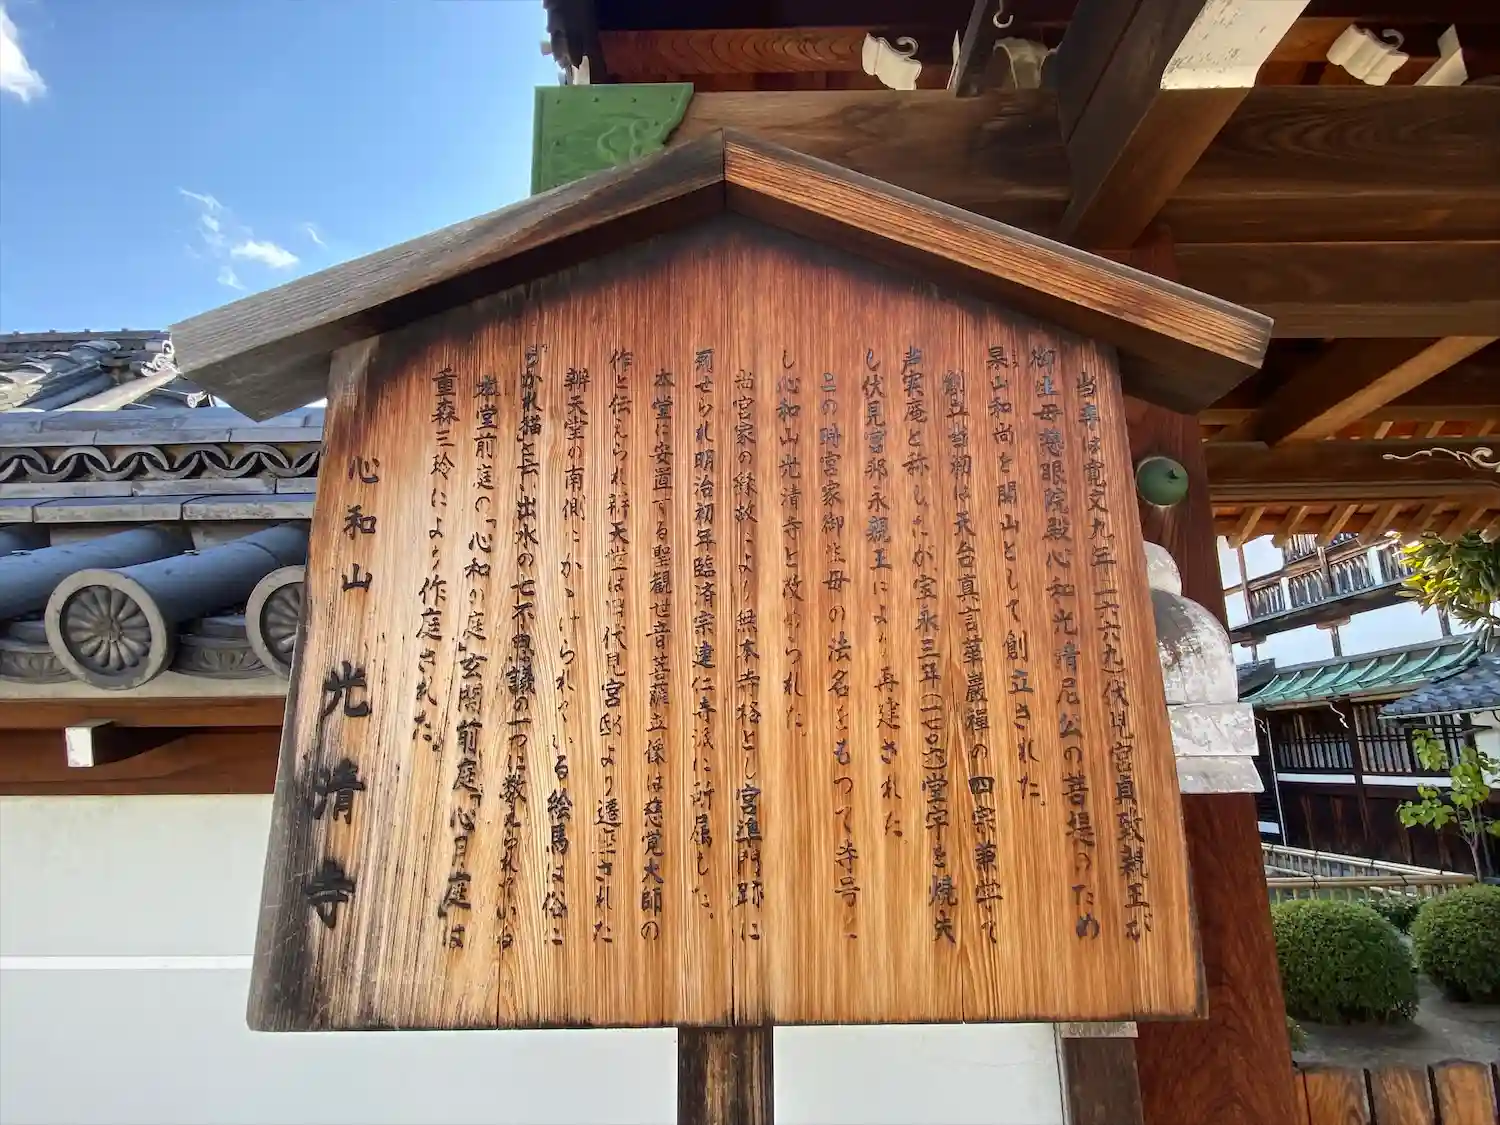 当寺は寛文九年(一六六九)伏見宮貞致親王が
御生母慈眼院殿心和光清尼公の菩提のため
杲山和尚を開山として創立された。
創立当初は天台真言華厳禅の四宗兼学で
と称したが宝永三年(一七〇六)堂宇を焼失
し伏見宮邦永親王により再建された
この時宮家御生母の法名をもつて寺号を
し心和山光清寺と改められた。
尚宮家の縁故により無本寺格とし宮準門跡に
せられ明治初年臨済宗建仁寺派に所属した。
本堂に安置する聖観世音菩薩立像は慈覚大師の
作と伝えられ辨天堂は旧伏見宮邸より遷座された
辨天堂の南側にかかげられている絵馬は俗に
うかれ猫と云い出水の七不思議の一つに数えられている
本堂前庭の「心和の庭」玄関前庭「心月庭」は
重森三玲により作庭された。
心和山 光清寺